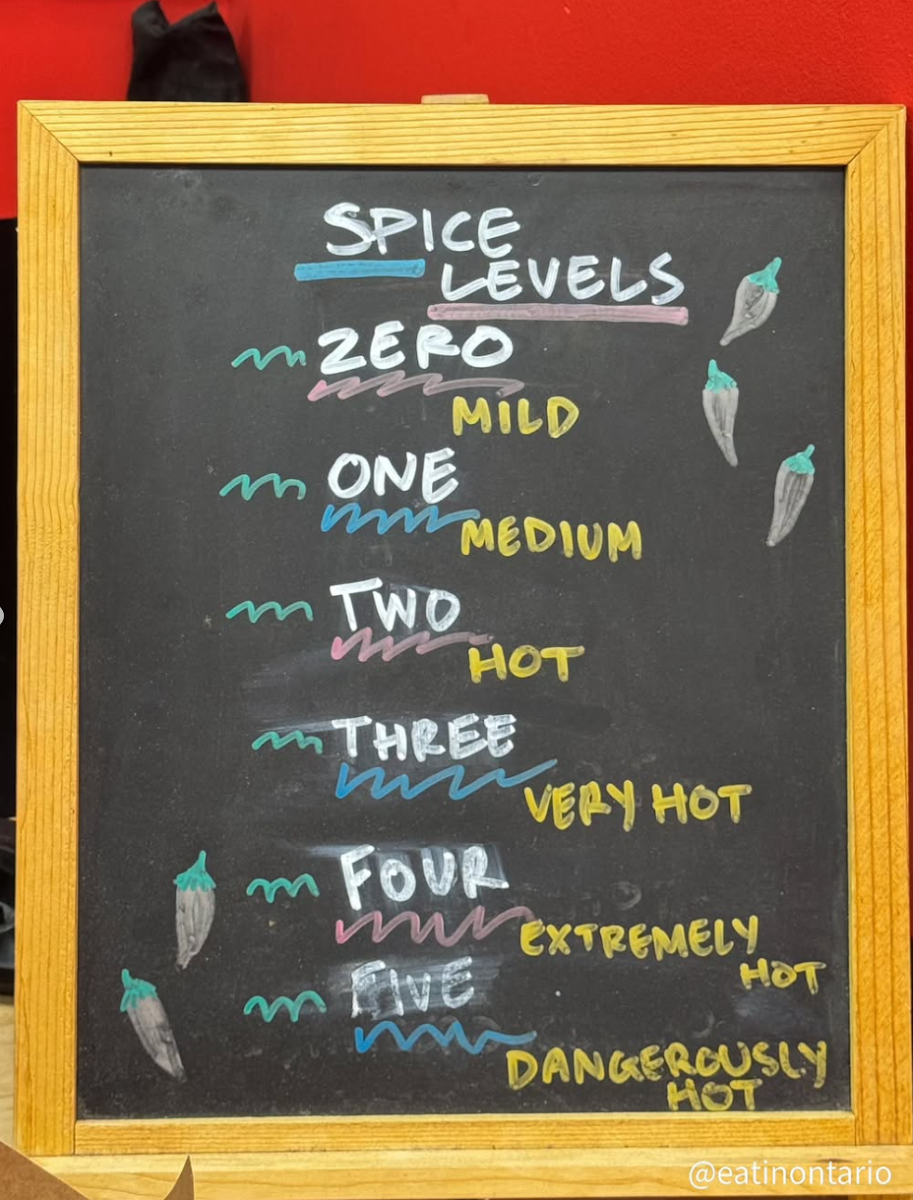 SPICE
LEVELS
ZERO
MILD
ONE
MEDIUM
TWO
HOT
THREE
VERY HOT
FOUR
EXTREMELY
HOT
FIVE
DANGEROUSLY
HOT
@eatinontario